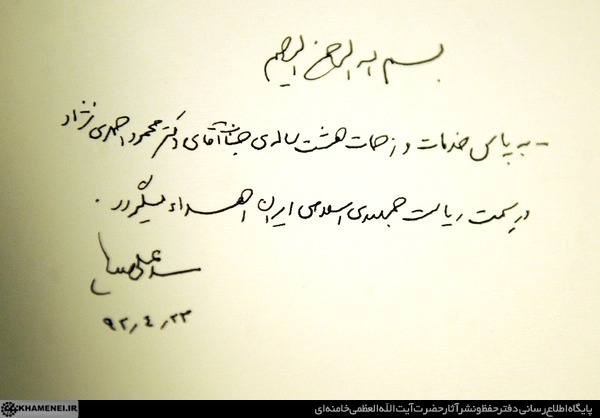 بسم الله الرحمن الرحیم
- به پاس خدمات و زحمات هشت ساله‌ی جناب آقای دکتر محمود احمدی نژاد
در سمت ریاست جمهوری اسلامی ایران اهداء میگردد.
سید علی
۹۲٫۴٫۲۳
KHAMENEI.IR
پایگاه اطلاع رسانی دفتر حفظ و نشر آثار حضرت آیت الله العظمی خامنه‌ای